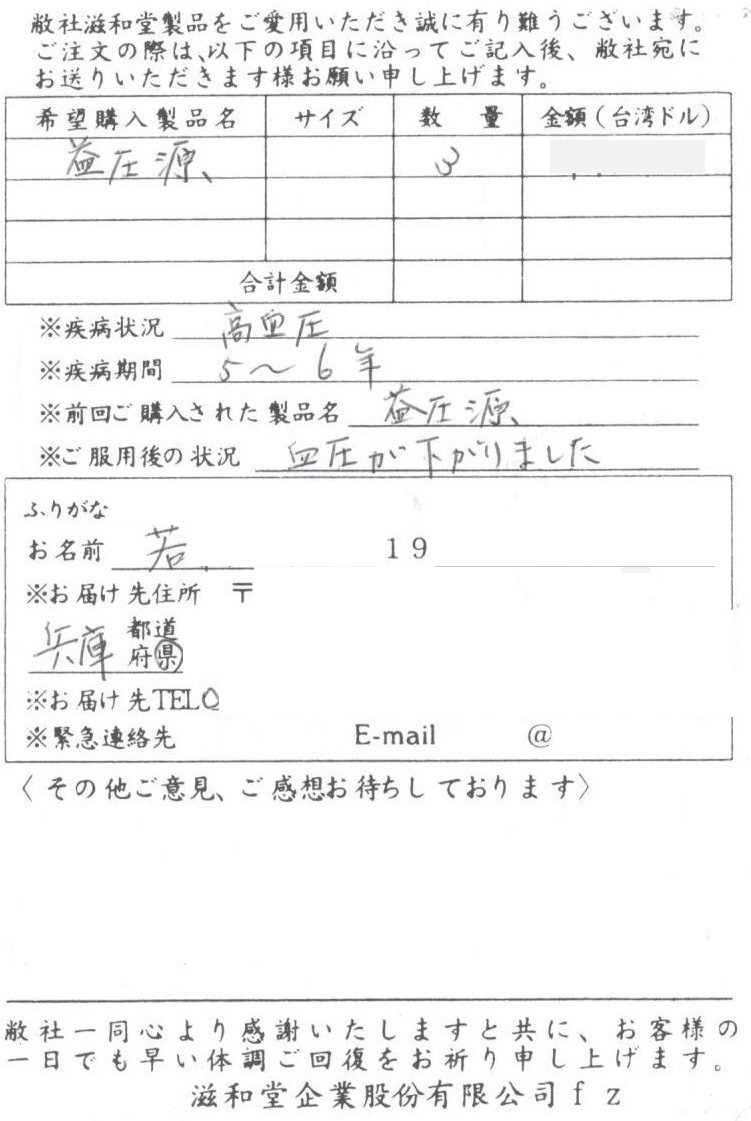 敝社滋和堂製品をご愛用いただき誠に有り難うございます。
ご注文の際は、以下の項目に沿ってご記入後、敝社宛に
お送りいただきます様お願い申し上げます。
希望購入製品名 サイズ 数 量 金額(台湾ドル)
益圧源、 3
合計金額
※疾病状況 高血圧
※疾病期間 5～6年
※前回ご購入された製品名 益圧源、
※ご服用後の状況 血圧が下がりました
ふりがな
お名前 若 19
※お届け先住所 〒
兵庫 都道府県
※お届け先TEL 0
※緊急連絡先 E-mail @
〈その他ご意見、ご感想お待ちしております〉
敝社一同心より感謝いたしますと共に、お客様の
一日でも早い体調ご回復をお祈り申し上げます。
滋和堂企業股份有限公司fz